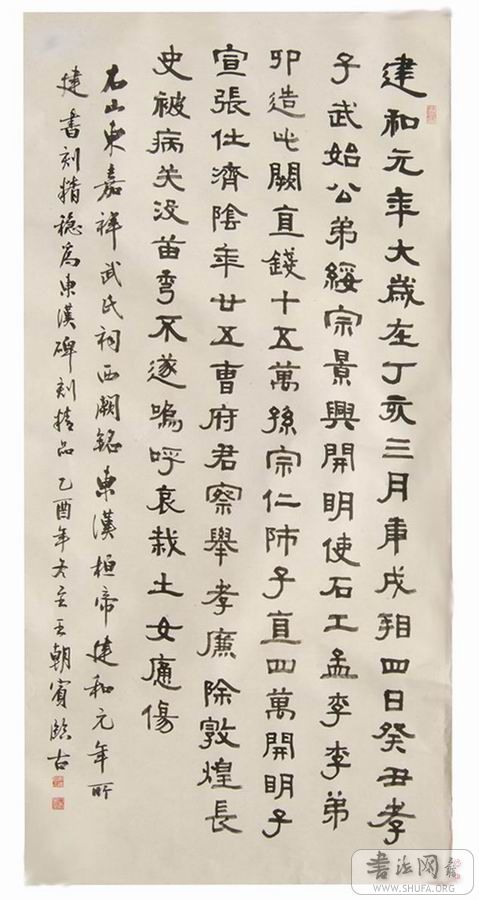 建和元年大歲在丁亥三月庚戌朔四日癸丑孝
子武始公弟綏宗景興開明使石工孟李李弟
卯造此闕直錢十五萬孫宗作師子直四萬開明子
宣張仕濟陰年廿五曹府君察舉孝廉除敦煌長
史被病夭没苗秀不遂嗚呼哀哉士女痛傷
右山東嘉祥武氏祠西闕銘東漢桓帝建和元年所
建書刻精穩為東漢碑刻精品乙酉年冬王朝賓臨古
書法网
WWW.SHUFA.ORG